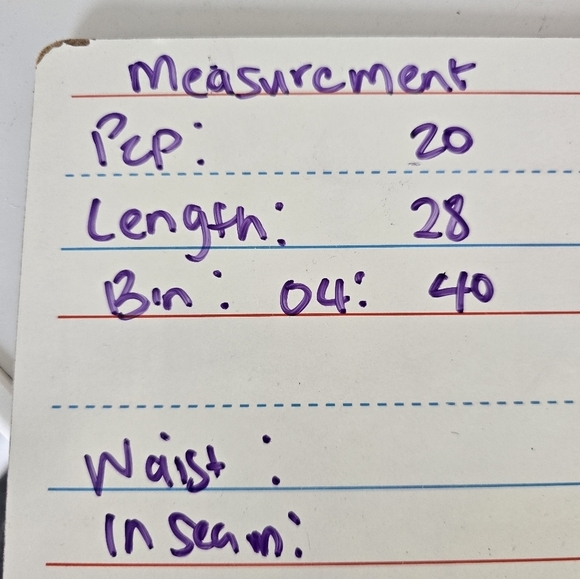 Measurement
Pzp: 20
Length: 28
Bin: 04: 40
Waist:
Inseam: